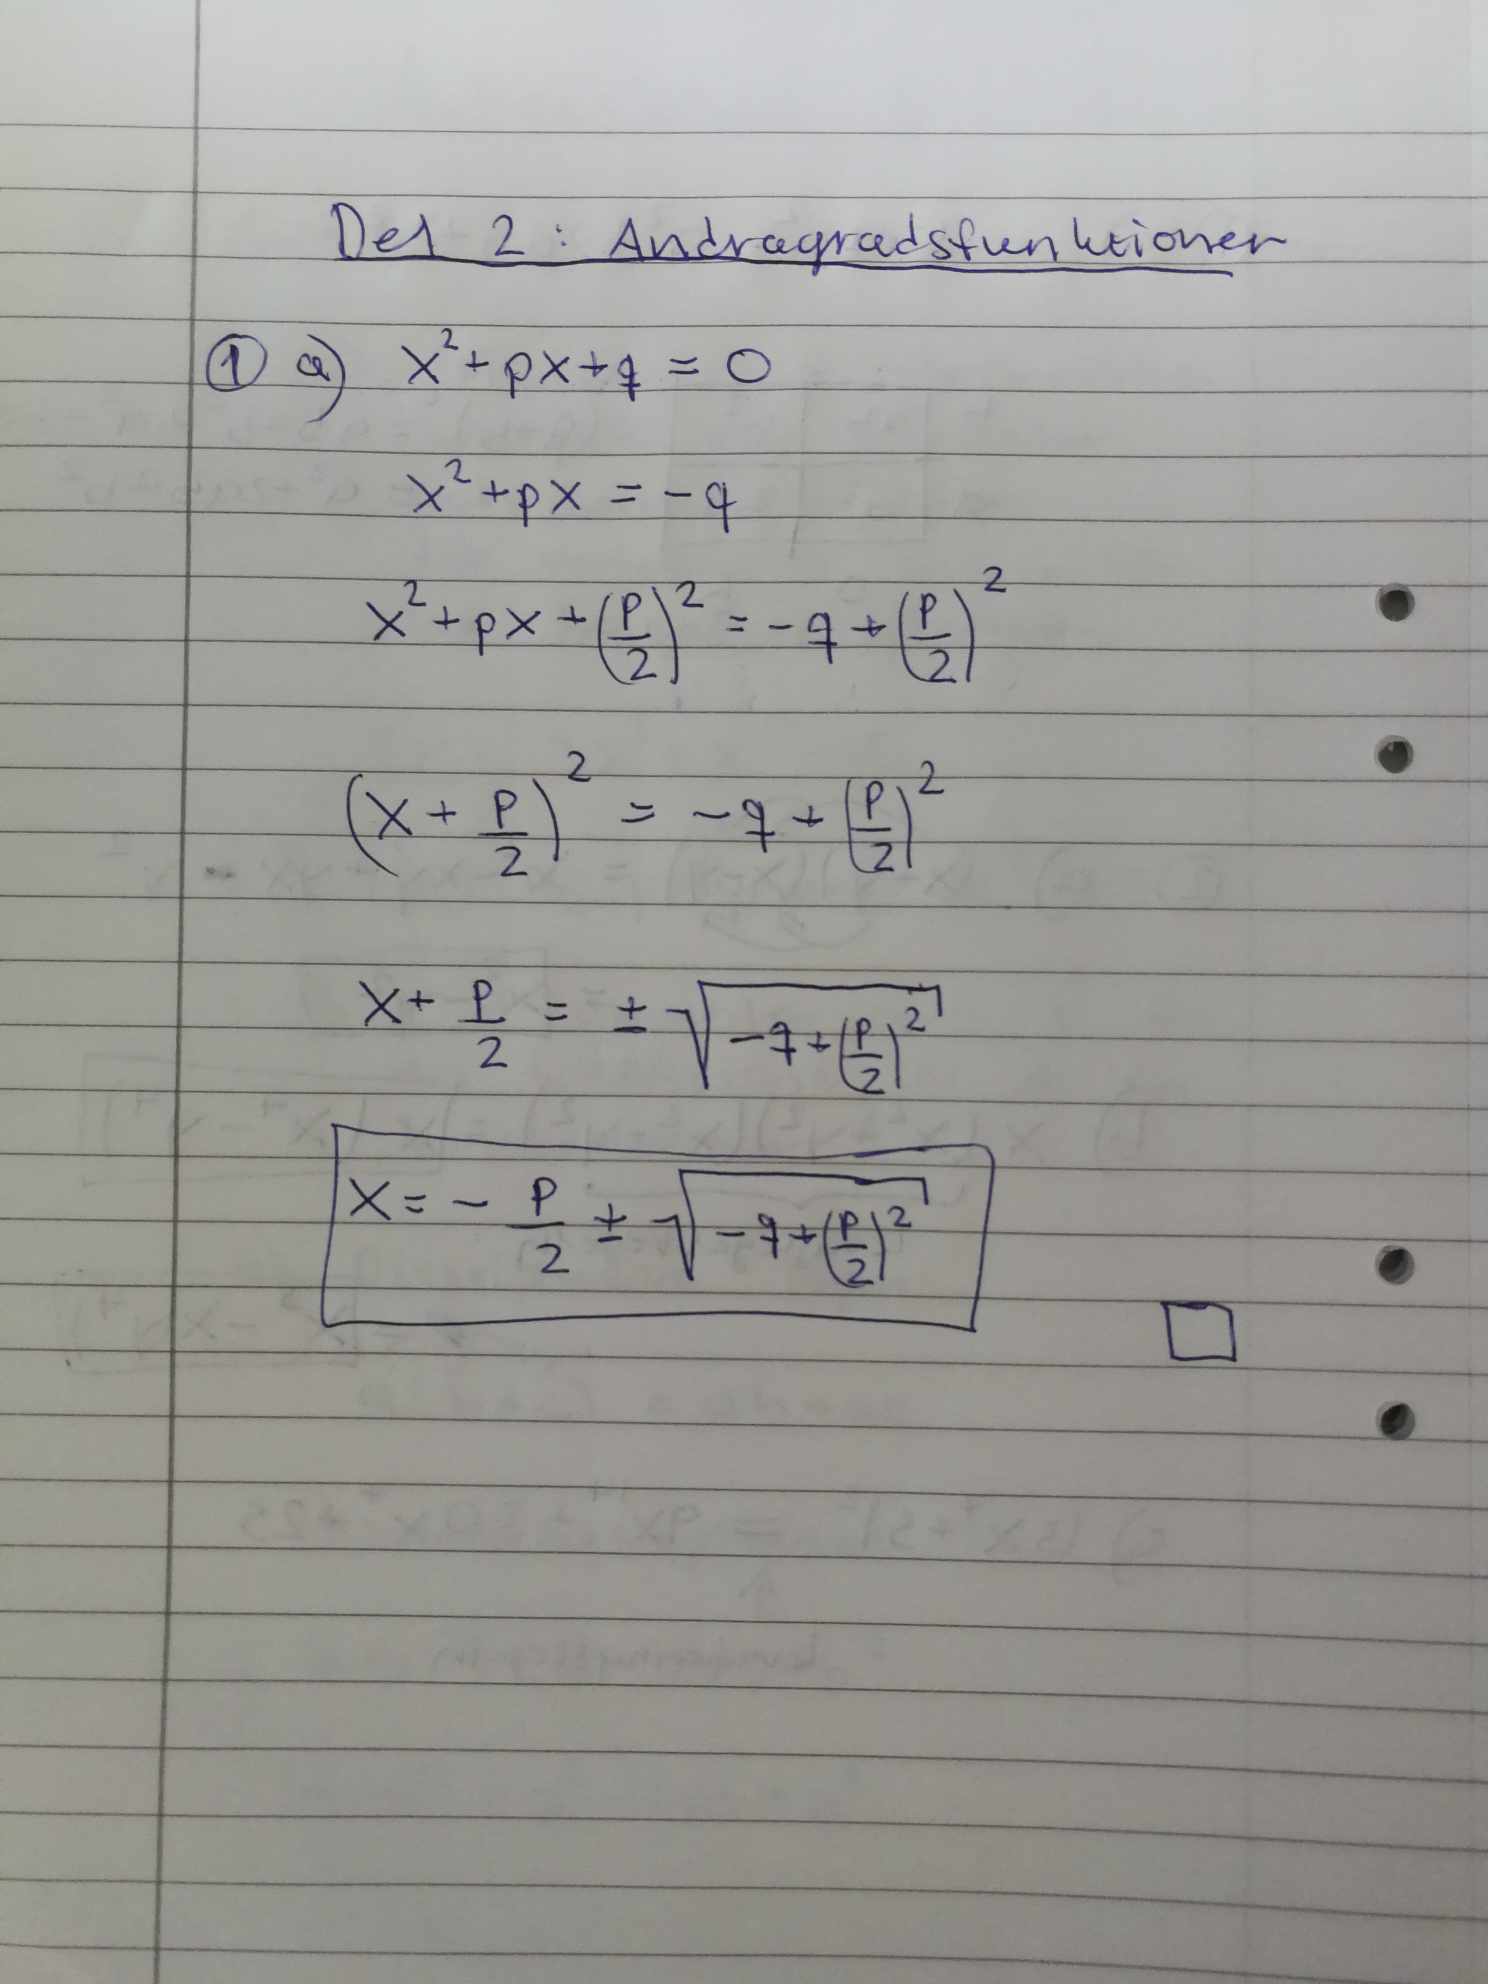 Del 2: Andragradsfunktioner
① a) x² + px + q = 0
x² + px = -q
x² + px + (p/2)² = -q + (p/2)²
(x + p/2)² = -q + (p/2)²
x + p/2 = ± √(-q + (p/2)²)
x = - p/2 ± √(-q + (p/2)²)
□